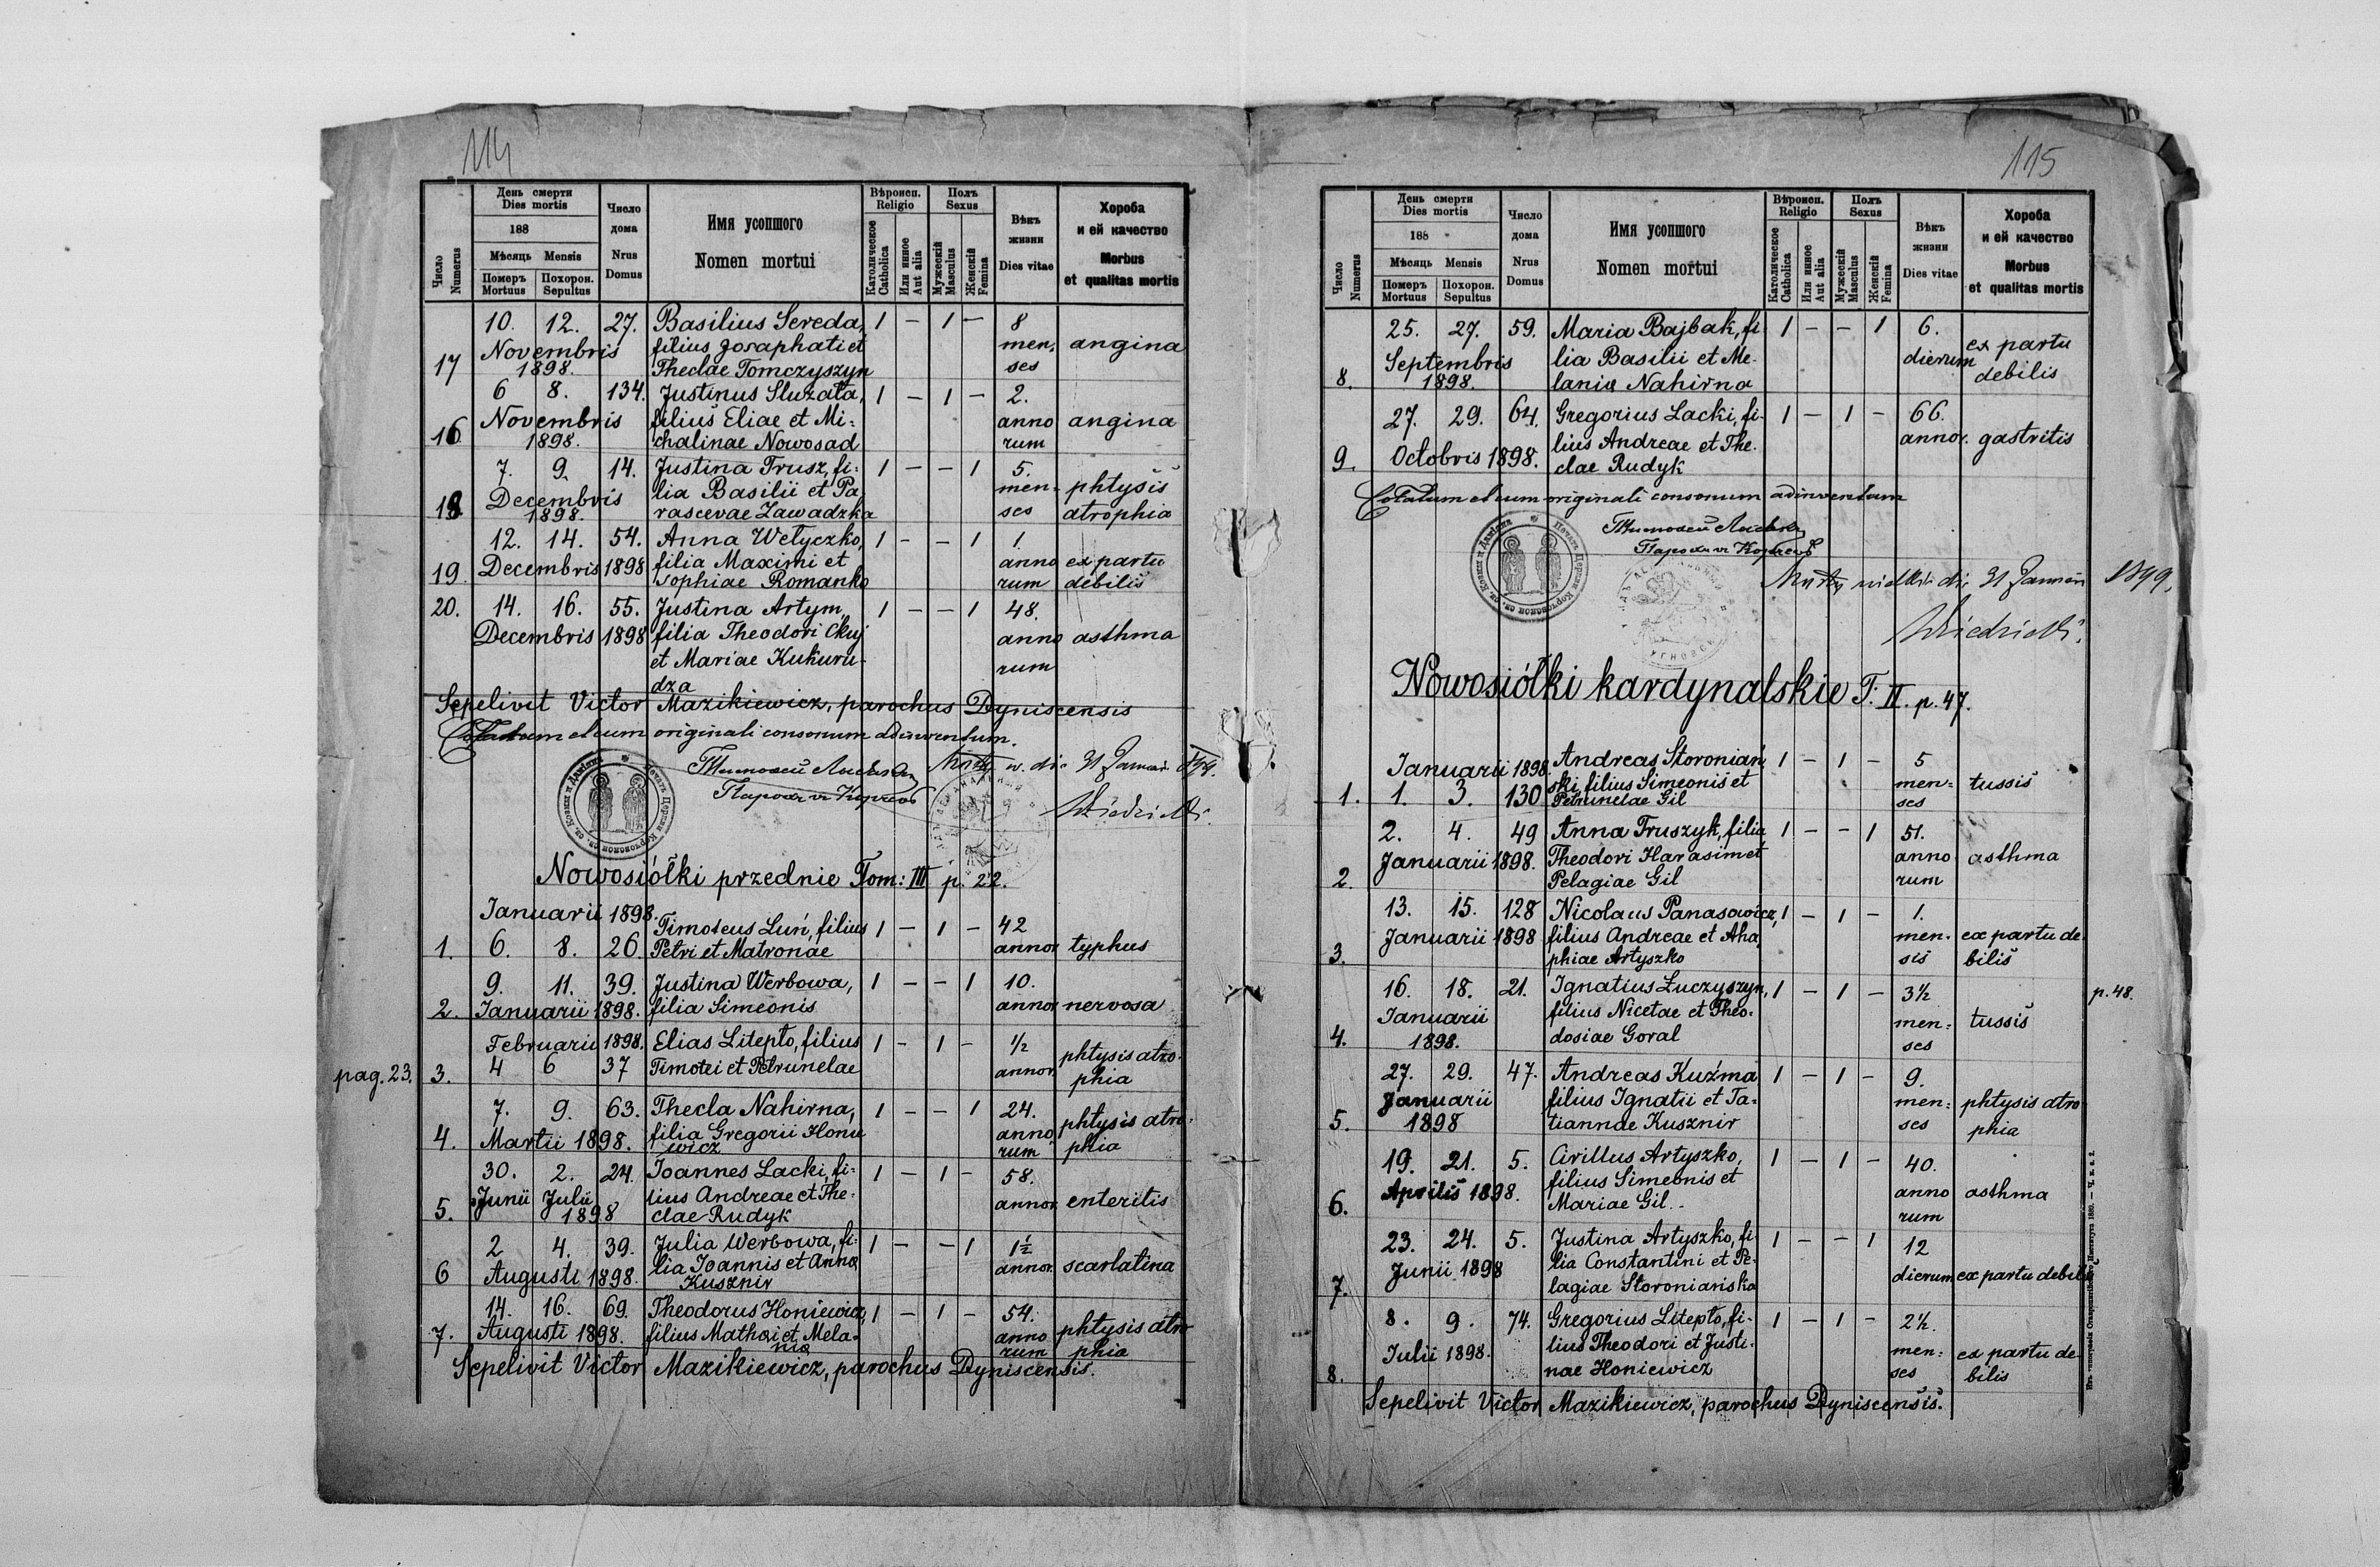 114
День смерти
Dies mortis
188
Мѣсяць Mensis
Число
Numerus
Померъ
Mortuus
Похорон.
Sepultus
Число
дома
Nrus
Domus
Имя усопшого
Nomen mortui
Вѣроисп.
Religio
Католическое
Catholica
Или инное
Aut alia
Полъ
Sexus
Мужескій
Masculus
Женскій
Femina
Вѣкъ
жизни
Dies vitae
Хороба
и ей качество
Morbus
et qualitas mortis
10. 12. 27. Basilius Sereda, 1 – 1 – 8
Novembris filius Josaphati et men: angina
17 1898. Theclae Tomczyszyn ses
6 8. 134. Justinus Służała, 1 – 1 – 2.
Novembris filius Eliae et Mi: anno angina
16 1898. chalinae Nowosad rum
7. 9. 14. Justina Trusz, fi: 1 – – 1 5.
Decembris lia Basilii et Pa men: phtysis
18 1898. rascevae Zawadzka ses atrophia
12. 14. 54. Anna Wełyczko, 1 – – 1 1.
19. Decembris 1898 filia Maximi et anno ex partu
Sophiae Romanko rum debilis
20. 14. 16. 55. Justina Artym, 1 – – 1 48.
Decembris 1898 filia Theodori Ckuj anno asthma
et Mariae Kukuru- rum
dza
Sepelivit Victor Mazikiewicz, parochus Dyniscensis
Collatum et cum originali consonum adinventum.
Nowosiółki przednie Tom: III p. 22.
Januarii 1898. Timoteus Luń, filius 1 – 1 – 42
1. 6. 8. 26. Petri et Matronae annor. typhus
9. 11. 39. Justina Werbowa, 1 – – 1 10.
2. Januarii 1898. filia Simeonis annor. nervosa
Februarii 1898. Elias Litepło, filius 1 – 1 – ½ phtysis atro-
pag. 23. 3. 4 6 37 Timotei et Petrunelae annor. phia
7. 9. 63. Thecla Nahirna, 1 – – 1 24. phtysis atro-
4. Martii 1898. filia Gregorii Honie anno phia
wicz rum
30. 2. 24. Joannes Lacki, fi: 1 – 1 – 58.
Junii Julii lius Andreae et The: annor. enteritis
5. 1898 clae Rudyk
2 4. 39. Julia Werbowa, fi: 1 – – 1 1½
6 Augusti 1898. lia Joannis et Anna annor. scarlatina
Kusznir
14. 16. 69. Theodorus Honiewicz, 1 – 1 – 54.
7. Augusti 1898. filius Mathei et Mela- anno phtysis atro
nia rum phia
Sepelivit Victor Mazikiewicz, parochus Dyniscensis.
115
День смерти
Dies mortis
188
Мѣсяць Mensis
Число
Numerus
Померъ
Mortuus
Похорон.
Sepultus
Число
дома
Nrus
Domus
Имя усопшого
Nomen mortui
Вѣроисп.
Religio
Католическое
Catholica
Или инное
Aut alia
Полъ
Sexus
Мужескій
Masculus
Женскій
Femina
Вѣкъ
жизни
Dies vitae
Хороба
и ей качество
Morbus
et qualitas mortis
25. 27. 59. Maria Bajbak, fi 1 – – 1 6.
Septembris lia Basilii et Me- dierum ex partu
8. 1898. lania Nahirna debilis
27. 29. 64. Gregorius Lacki, fi- 1 – 1 – 66.
lius Andreae et The- annor. gastritis
9. Octobris 1898. clae Rudyk
Collatum et cum originali consonum adinventum
1899.
Nowosiółki kardynalskie T. II. p. 47.
Januarii 1898. Andreas Storoniań 1 – 1 – 5
ski, filius Simeonis et men: tussis
1. 1. 3. 130 Petrunelae Gil ses
2. 4. 49 Anna Truszyk, filia 1 – – 1 51.
Januarii 1898. Theodori Harasim et anno asthma
2. Pelagiae Gil rum
13. 15. 128 Nicolaus Panasowicz, 1 – 1 – 1.
Januarii 1898 filius Andreae et Aha men. ex partu de
3. phiae Artyszko sis bilis
16. 18. 21. Ignatius Łuczyszyn, 1 – 1 – 3½ p. 48.
Januarii filius Nicetae et Theo- men: tussis
4. 1898. dosiae Goral ses
27. 29. 47. Andreas Kuźma 1 – 1 – 9.
Januarii filius Ignatii et Ta- men: phtysis atro
5. 1898 tiannae Kusznir ses phia
19. 21. 5. Cirillus Artyszko, 1 – 1 – 40.
Aprilis 1898. filius Simeonis et anno asthma
6. Mariae Gil. rum
23. 24. 5. Justina Artyszko, fi 1 – – 1 12
Junii 1898 lia Constantini et Pe- dierum ex partu debilis
7. lagiae Storoniańska
8. 9. 74. Gregorius Litepło, fi- 1 – 1 – 2½.
Julii 1898. lius Theodori et Justi- men: ex partu de
8. nae Honiewicz ses bilis
Sepelivit Victor Mazikiewicz, parochus Dyniscensis.